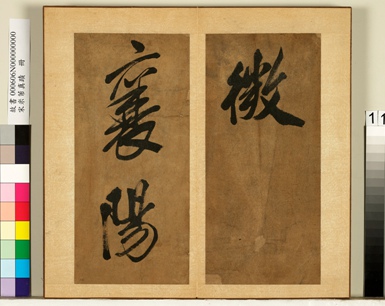 微
襄陽
故書 000606N000000000
宋米芾真蹟 冊
11